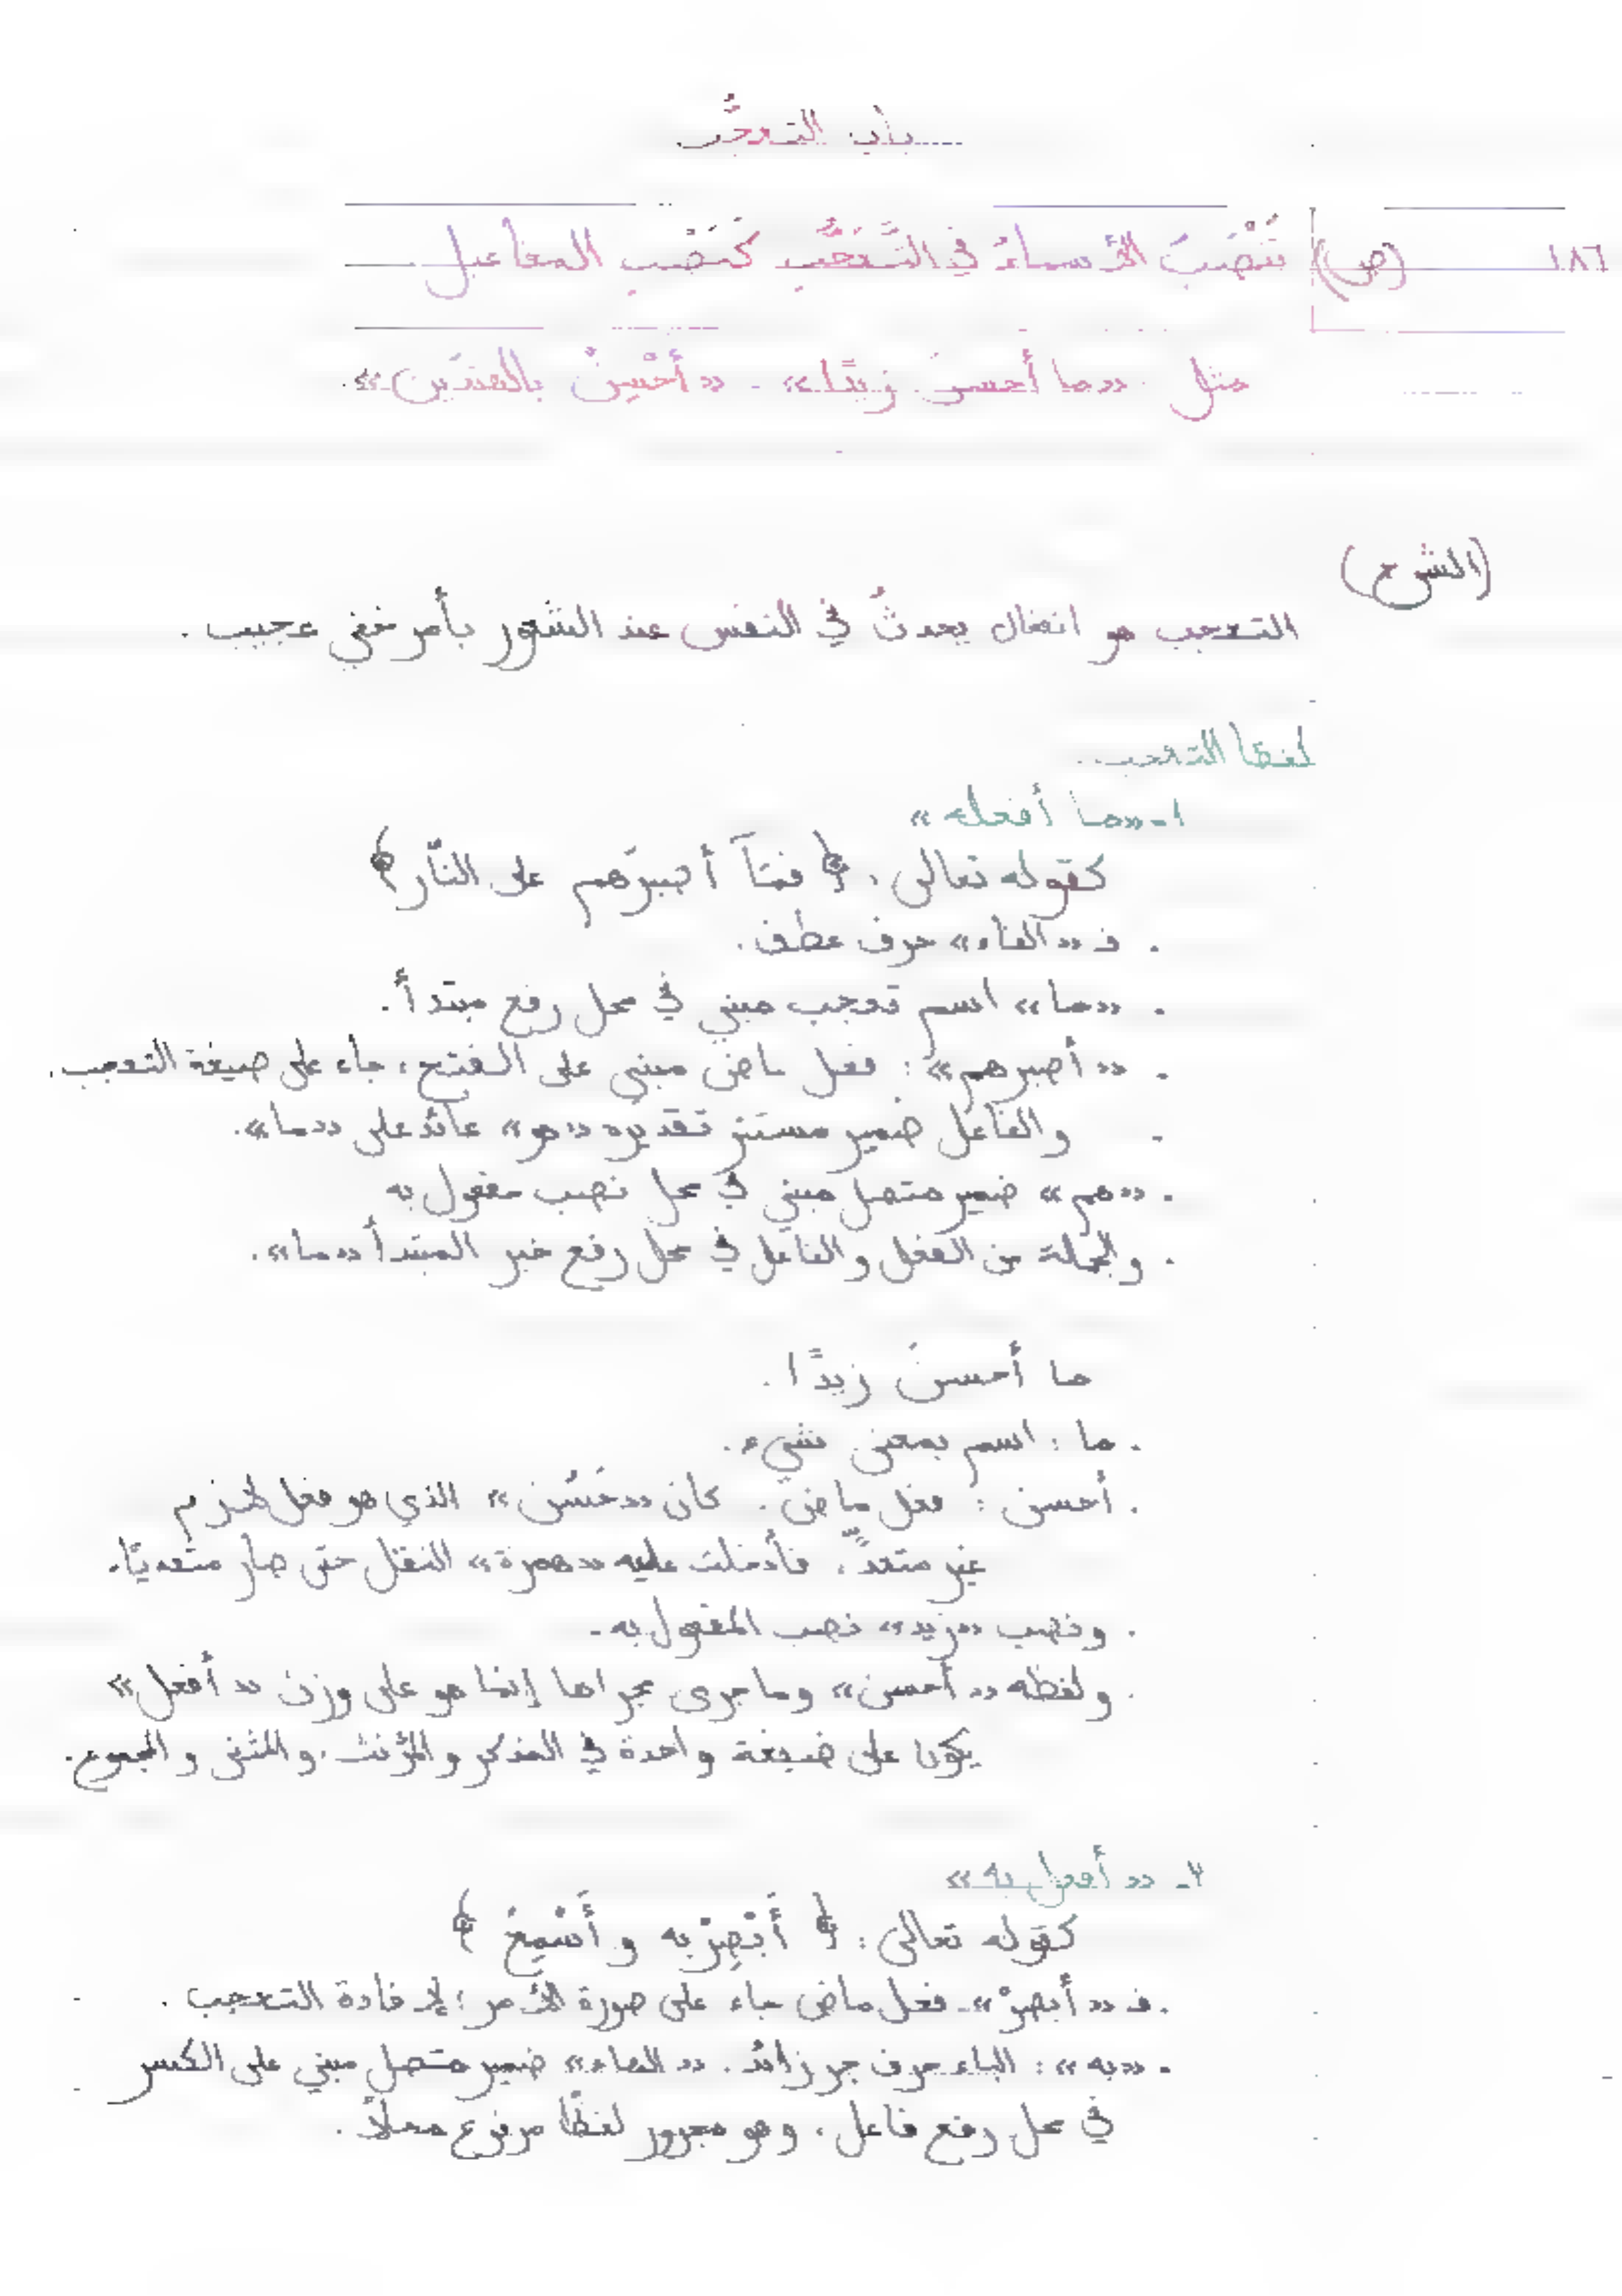 باب التعجُّب
١٨٦ (ص) تَنْصِبُ الأسماءَ في التَّعَجُّبِ كَنَصْبِ المفاعيل
مثل «ما أحسنَ زيدًا» - «أَحْسِنْ بالهندَين».
(الشرح)
التعجب هو انفعال يحدثُ في النفس عند الشعور بأمر خفي عجيب .
لفظا التعجب.
١- «ما أفعله»
كقوله تعالى : ﴿ فمَآ أصبرَهم على النّار ﴾
. فـ «الفاء» حرف عطف .
. «ما» اسم تعجب مبني في محل رفع مبتدأ .
. «أصبرهم» : فعل ماض مبني على الفتح ، جاء على صيغة التعجب .
. والفاعل ضمير مستتر تقديره «هو» عائد على «ما».
. «هم» ضمير متصل مبني في محل نصب مفعول به
. والجملة من الفعل والفاعل في محل رفع خبر المبتدأ «ما».
ما أحسنَ زيدًا .
. ما : اسم بمعنى شيء .
. أحسن : فعل ماض . كان «حَسُن» الذي هو فعل لازم
غير متعدٍّ ، فأدخلت عليه «همزة» النقل حتى صار متعديًا.
. ونصب «زيد» نصب المفعول به .
. ولفظه «أحسن» وما جرى مجراها إنما هو على وزن «أفعل»
يكون على صيغة واحدة في المذكر والمؤنث ، والمثنى والمجموع.
٢- «أفعل به»
كقوله تعالى : ﴿ أَبْصِرْ به و أَسْمِعْ ﴾
. فـ «أبصرْ» فعل ماض جاء على صورة الأمر ؛ لإفادة التعجب .
. «به» : الباء حرف جر زائد . «الهاء» ضمير متصل مبني على الكسر
في محل رفع فاعل ، وهو مجرور لفظًا مرفوع محلاً .